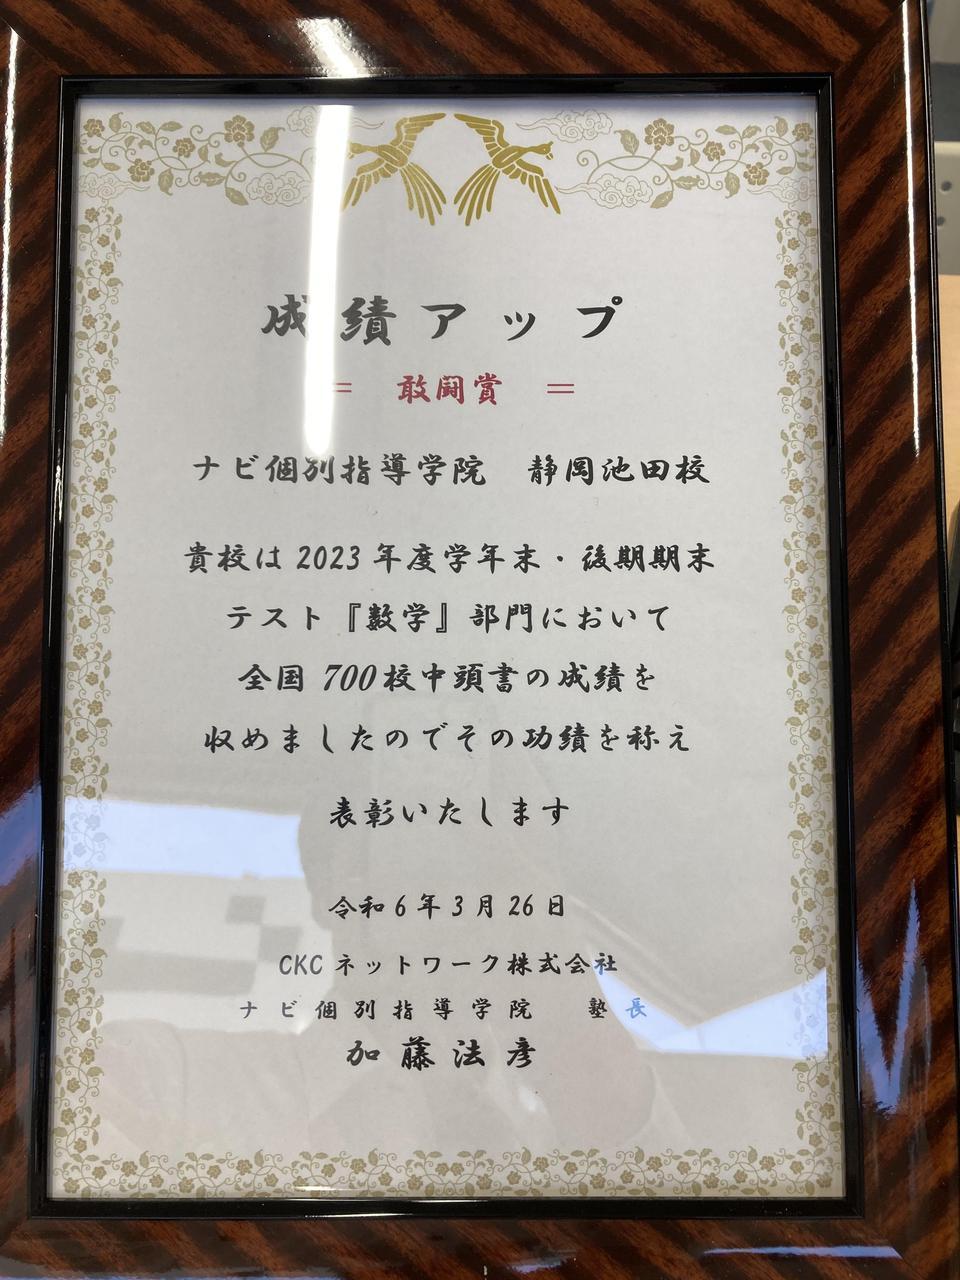 成績アップ
＝ 敢闘賞 ＝
ナビ個別指導学院 静岡池田校
貴校は2023年度学年末・後期期末
テスト『数学』部門において
全国700校中頭書の成績を
収めましたのでその功績を称え
表彰いたします
令和6年3月26日
CKCネットワーク株式会社
ナビ個別指導学院 塾長
加藤法彦